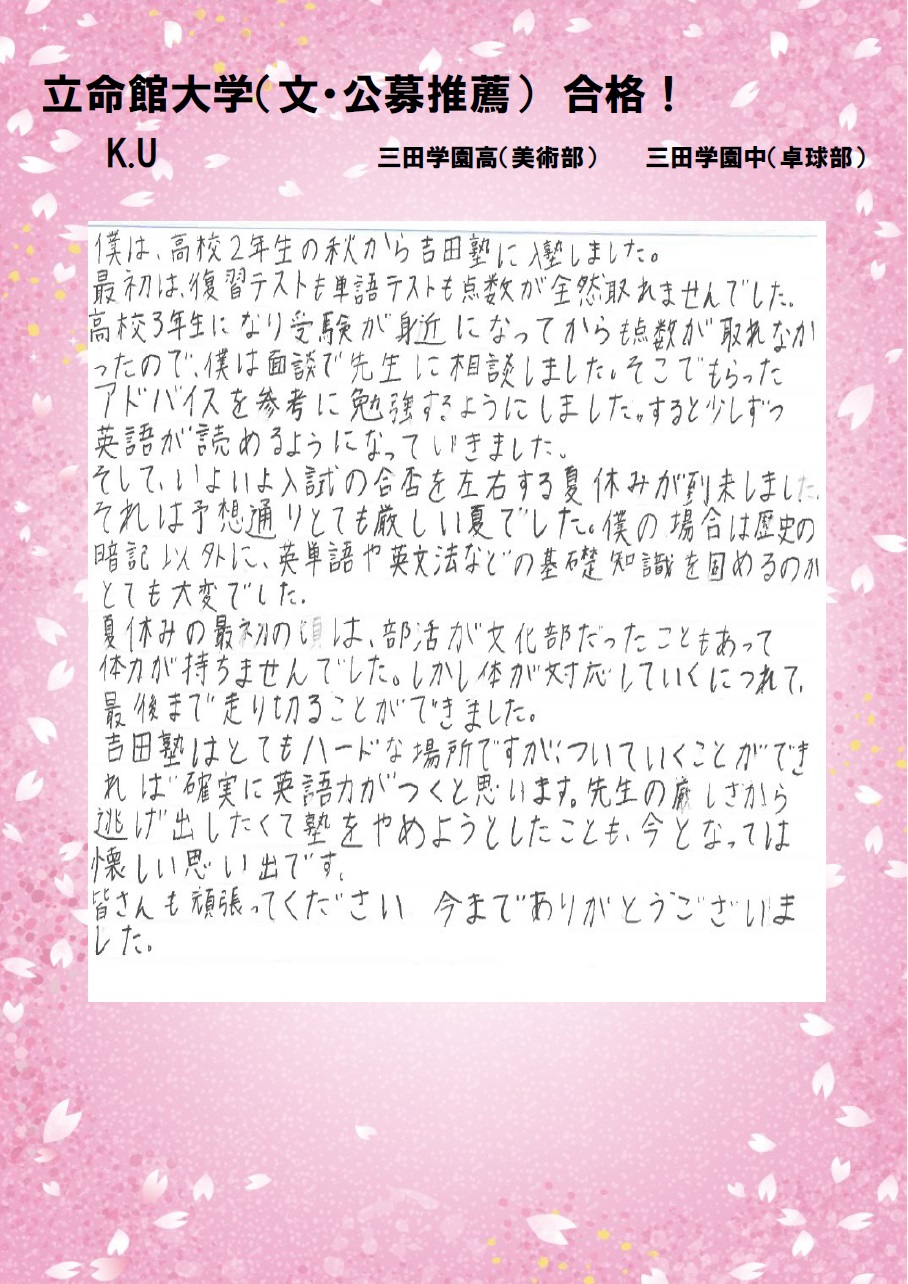 立命館大学(文・公募推薦) 合格!
K.U 三田学園高(美術部) 三田学園中(卓球部)
僕は、高校2年生の秋から吉田塾に入塾しました。
最初は、復習テストも単語テストも点数が全然取れませんでした。
高校3年生になり受験が身近になってからも点数が取れなか
ったので、僕は面談で先生に相談しました。そこでもらった
アドバイスを参考に勉強するようにしました。すると少しずつ
英語が読めるようになっていきました。
そして、いよいよ入試の合否を左右する夏休みが到来しました。
それは予想通りとても厳しい夏でした。僕の場合は歴史の
暗記以外に、英単語や英文法などの基礎知識を固めるのが
とても大変でした。
夏休みの最初の頃は、部活が文化部だったこともあって
体力が持ちませんでした。しかし体が対応していくにつれて、
最後まで走り切ることができました。
吉田塾はとてもハードな場所ですが、ついていくことができ
れば確実に英語力がつくと思います。先生の厳しさから
逃げ出したくて塾をやめようとしたことも、今となっては
懐しい思い出です。
皆さんも頑張ってください 今までありがとうございま
した。